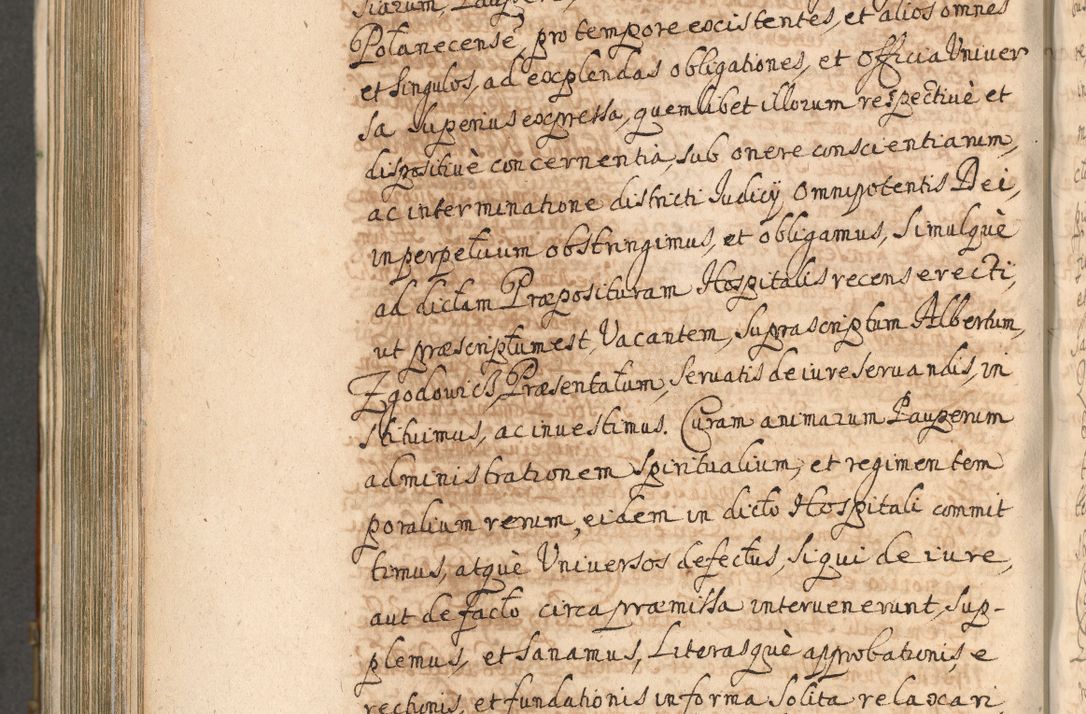 Polanecense, pro tempore existentes, et alios omnes
et singulos, ad explendas obligationes, et Officia Univer
sa superius expressa, quemlibet illorum respectivè et
dispositivè concernentia, sub onere conscientiarum,
ac interminatione districti Judicij Omnipotentis Dei,
in perpetuum obstringimus, et obligamus, Simulquè
ad dictam Præposituram Hospitalis recens erecti,
ut præscriptum est, Vacantem, suprascriptum Albertum,
Zgodowicz, Præsentatum, servatis de iure servandis, in
stituimus, ac investimus. Curam animarum Pauperum
administrationem spiritualium, et regimen tem
poralium rerum, eidem in dicto Hospitali commit
timus, atquè Universos defectus, siqui de iure,
aut de facto circa præmissa intervenerunt, sup-
plemus, et sanamus, Literasquè approbationis, e
rectionis, et fundationis in forma solita relaxari,